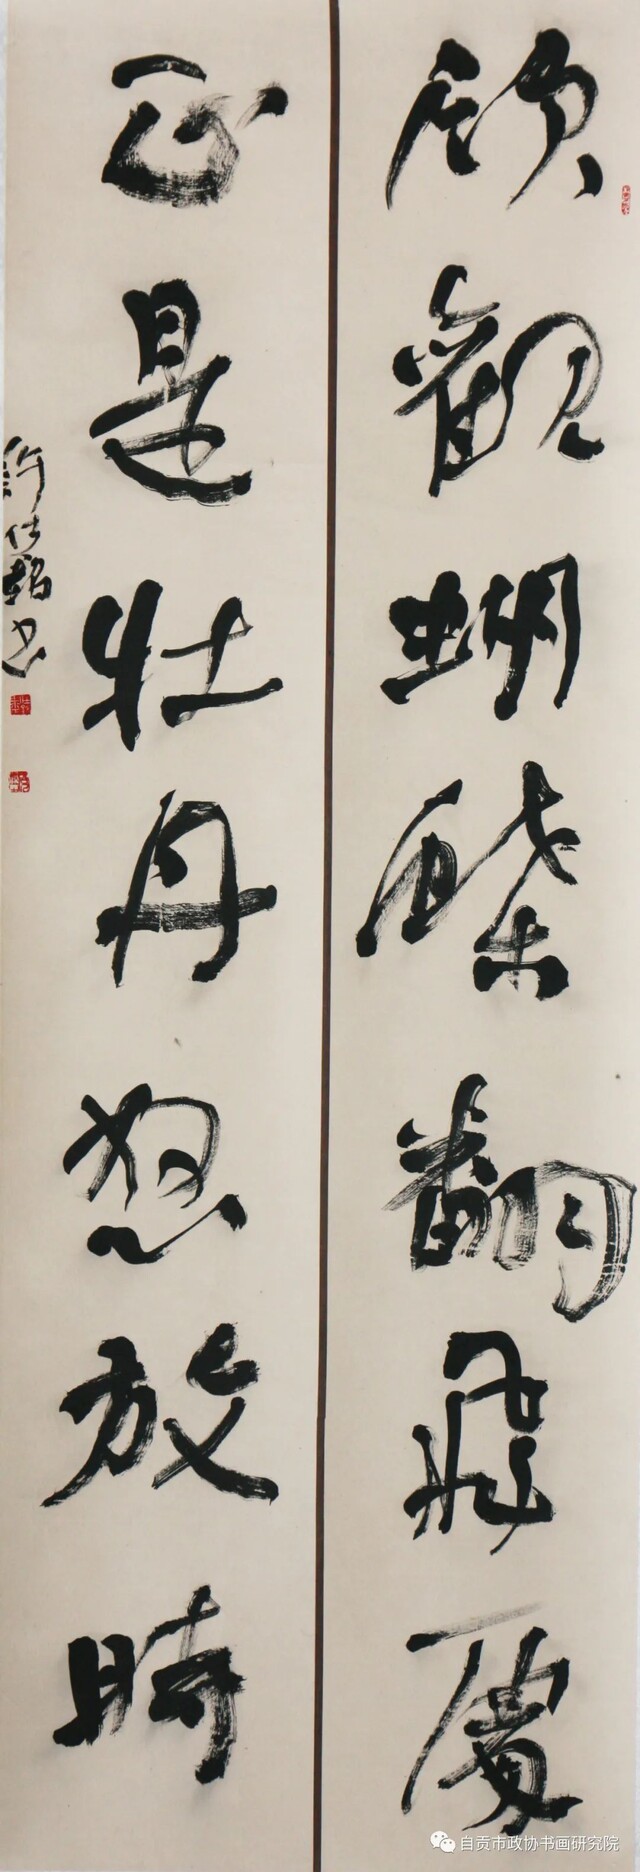 欣觀蝴蝶翻飛處
正是牡丹怒放時
許仕韜书
自贡市政协书画研究院